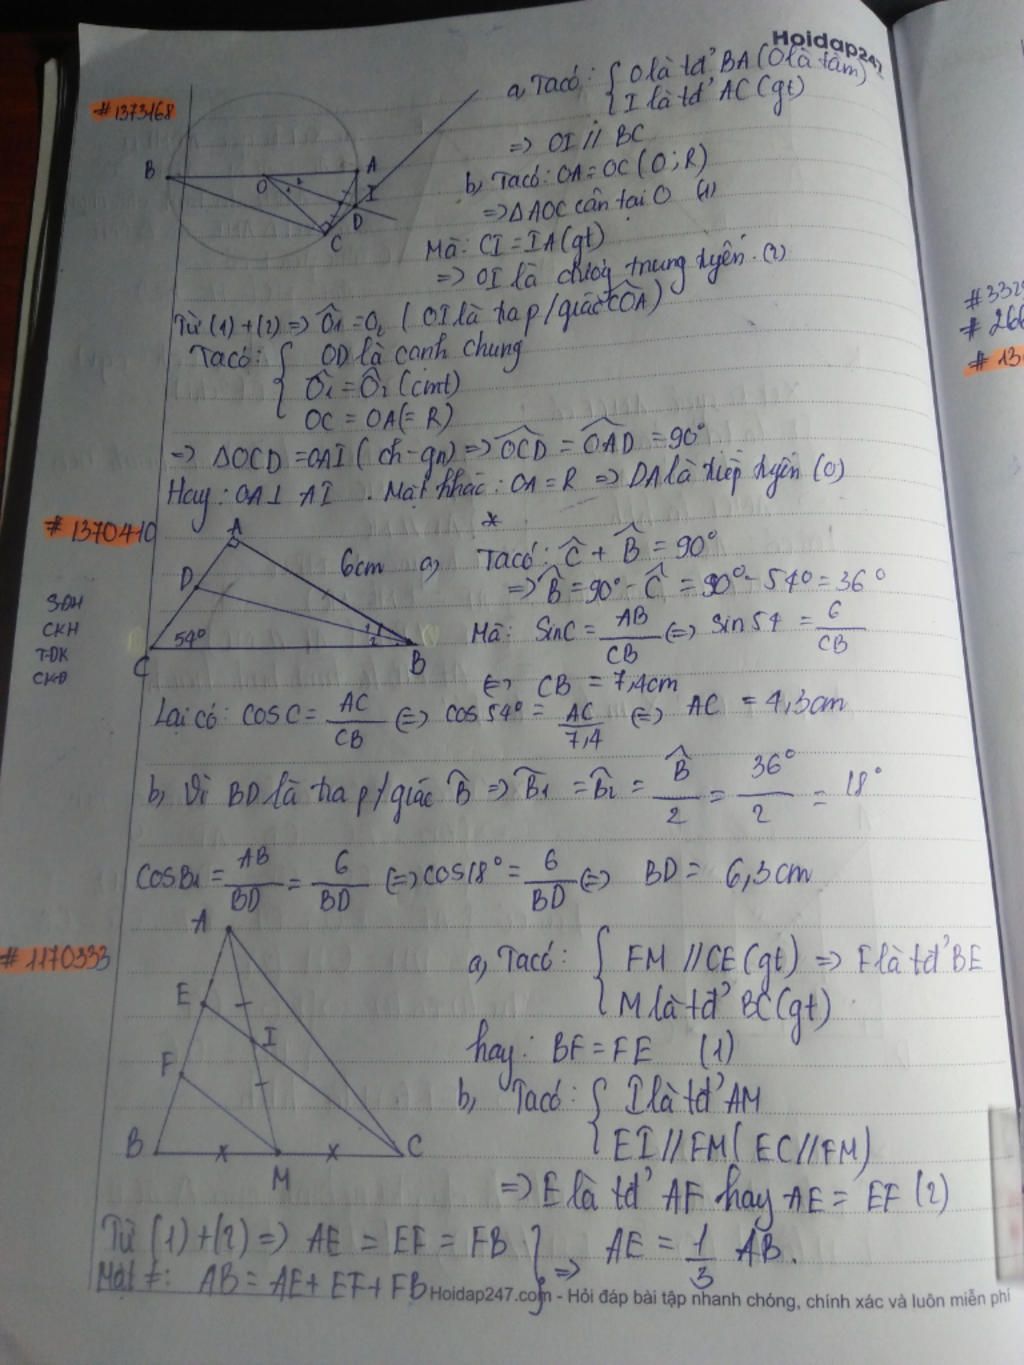 Hoidap247
#1373168
a, Ta có: { O là tđ' BA (O là tâm)
I là tđ' AC (gt)
=> OI // BC
b, Ta có: OA = OC (O; R)
=> ΔAOC cân tại O (1)
Mà: CI = IA (gt)
=> OI là đường trung tuyến. (2)
Từ (1)+(2) => Ô1 = O2 ( OI là tia p/giác CÔA)
Ta có: { OD là cạnh chung
Ô1 = Ô2 (cmt)
OC = OA (= R)
=> ΔOCD = OAI ( ch-gn) => OCD = OAD = 90°
Hay: OA ⊥ AI . Mặt khác: OA = R => DA là tiếp tuyến (O)
B O 1 2 A I D C
*
#1370410
A D 6cm 54° C 1 2 B
a, Ta có: Ĉ + B̂ = 90°
=> B̂ = 90° - Ĉ = 90° - 54° = 36°
SĐH
CKH
TĐK
CKĐ
Mà: Sin C = AB/CB (=) sin 54 = 6/CB
(=) CB = 7,4cm
Lại có: cos C = AC/CB (=) cos 54° = AC/7,4 (=) AC = 4,3cm
b, Vì BD là tia p/giác B̂ => B̂1 = B̂2 = B̂/2 = 36°/2 = 18°
cos B1 = AB/BD = 6/BD (=) cos 18° = 6/BD (=) BD = 6,3cm
#1170333
A E I F B M C
a, Ta có: { FM // CE (gt) => F là tđ' BE
M là tđ' BC (gt)
hay: BF = FE (1)
b, Ta có: { I là tđ' AM
EI // FM ( EC // FM)
=> E là tđ' AF hay AE = EF (2)
Từ (1)+(2) => AE = EF = FB } => AE = 1/3 AB.
Mặt ≠: AB = AE + EF + FB
Hoidap247.com - Hỏi đáp bài tập nhanh chóng, chính xác và luôn miễn phí
#332
#266
#13